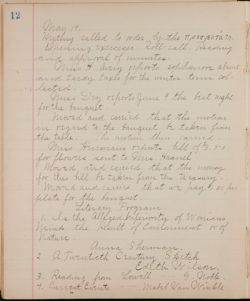 12
May 17.
Meeting called to order by the
Opening exercises roll-call, reading
and approval of minutes.
Miss Dey reports June 9 the best night
for the banquet.
Moved and carried that the motion
in regard to the banquet be taken from
the table. The motion then carried.
Mrs reports bill of
for flowers sent to Mrs.
Moved and carried that the money
for this bill be taken from the treasury.
Moved and carried that we pay
plate for the banquet.
Literary Program
1. Is the Alleged Inferiority of Woman's
Mind the Result of Environment or of
Nature.
Anna Sherman.
2. A Twentieth Century Sketch
Edith Wilson.
3. Reading from Lowell
4. Current Events Mabel Van Winkle